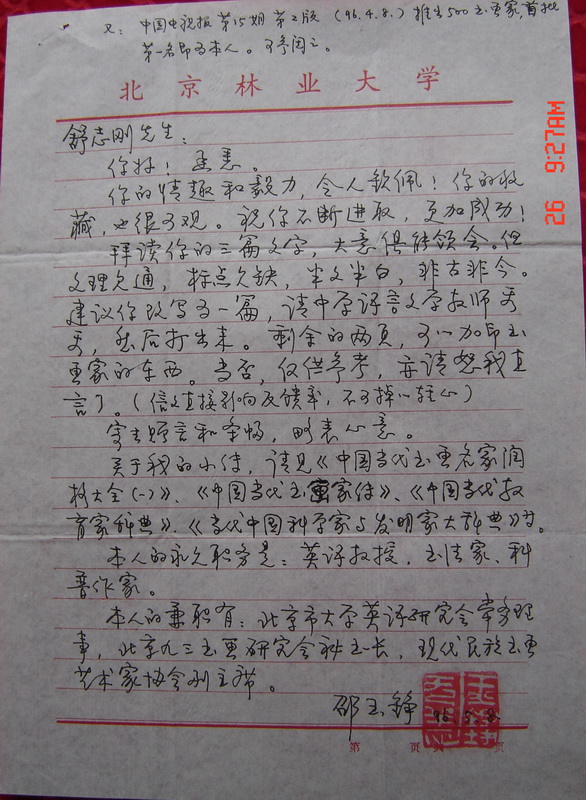 又：中国电视报第15期第2版（96.4.8.）推出500书画家，首批
第一名即为本人。可参阅之。
北京林业大学
舒志刚先生：
你好！函悉。
你的情趣和毅力，令人钦佩！你的收
藏，也很可观。祝你不断进取，更加成功！
拜读你的三篇文字，大意俱能领会。但
文理欠通，标点欠缺，半文半白，非古非今。
建议你改写了一篇，请中学语言文学教师看
看，然后打出来。剩余的两页，可以加印书
画家的东西。当否，仅供参考，亦请恕我直
言了。（信文直接影响反馈率，不可掉以轻心）
寄去题言和条幅，略表心意。
关于我的小传，请见《中国当代书画名家润
格大全（一）》、《中国当代书画家传》、《中国当代教
育家辞典》、《当代中国科学家与发明家大辞典》等。
本人的永久职务是：英语教授，书法家、科
普作家。
本人的兼职有：北京市大学英语研究会常务理
事，北京九三书画研究会秘书长，现代民族书画
艺术家协会副主席。
邵玉铮 96.5.8.
第 页共 页
26 9:27AM